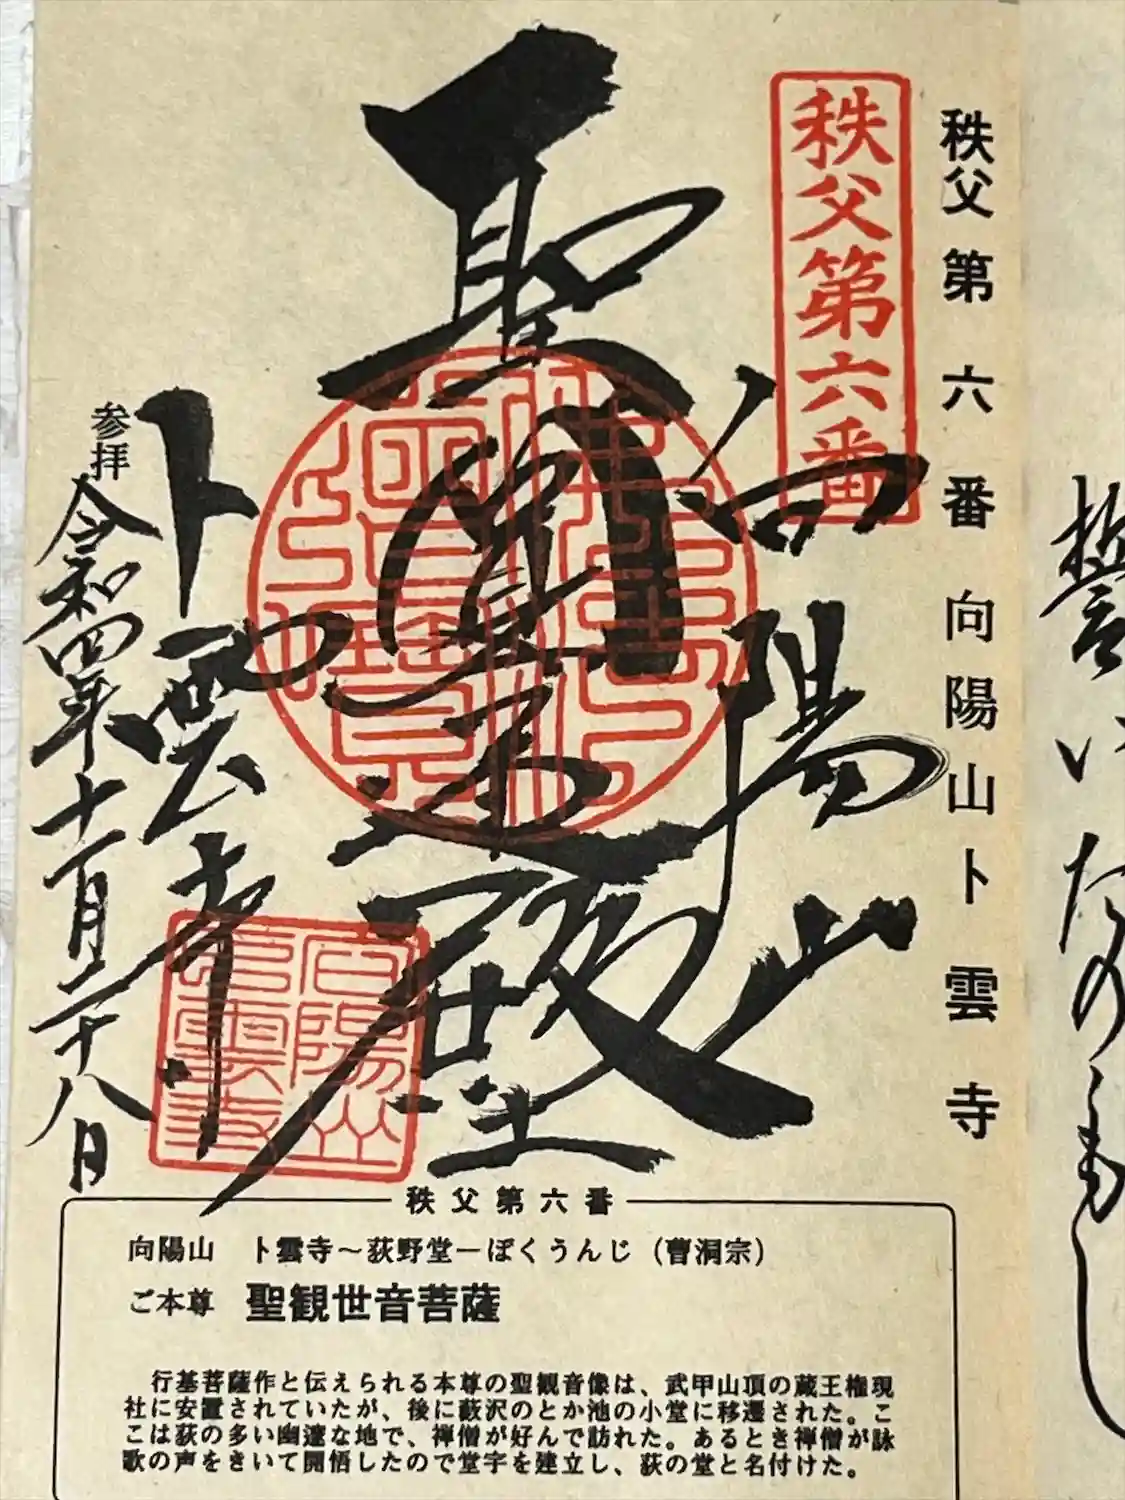 誓い
たのもし
秩父第六番 向陽山卜雲寺
秩父第六番
向陽山
聖観世音
殿
卜雲寺
参拝
令和四年十一月二十八日
秩父第六番
向陽山 卜雲寺～荻野堂ーぼくうんじ（曹洞宗）
ご本尊 聖観世音菩薩
行基菩薩作と伝えられる本尊の聖観音像は、武甲山頂の蔵王権現
社に安置されていたが、後に藪沢のとか池の小堂に移遷された。こ
こは荻の多い幽邃な地で、禅僧が好んで訪れた。あるとき禅僧が詠
歌の声をきいて開悟したので堂宇を建立し、荻の堂と名付けた。